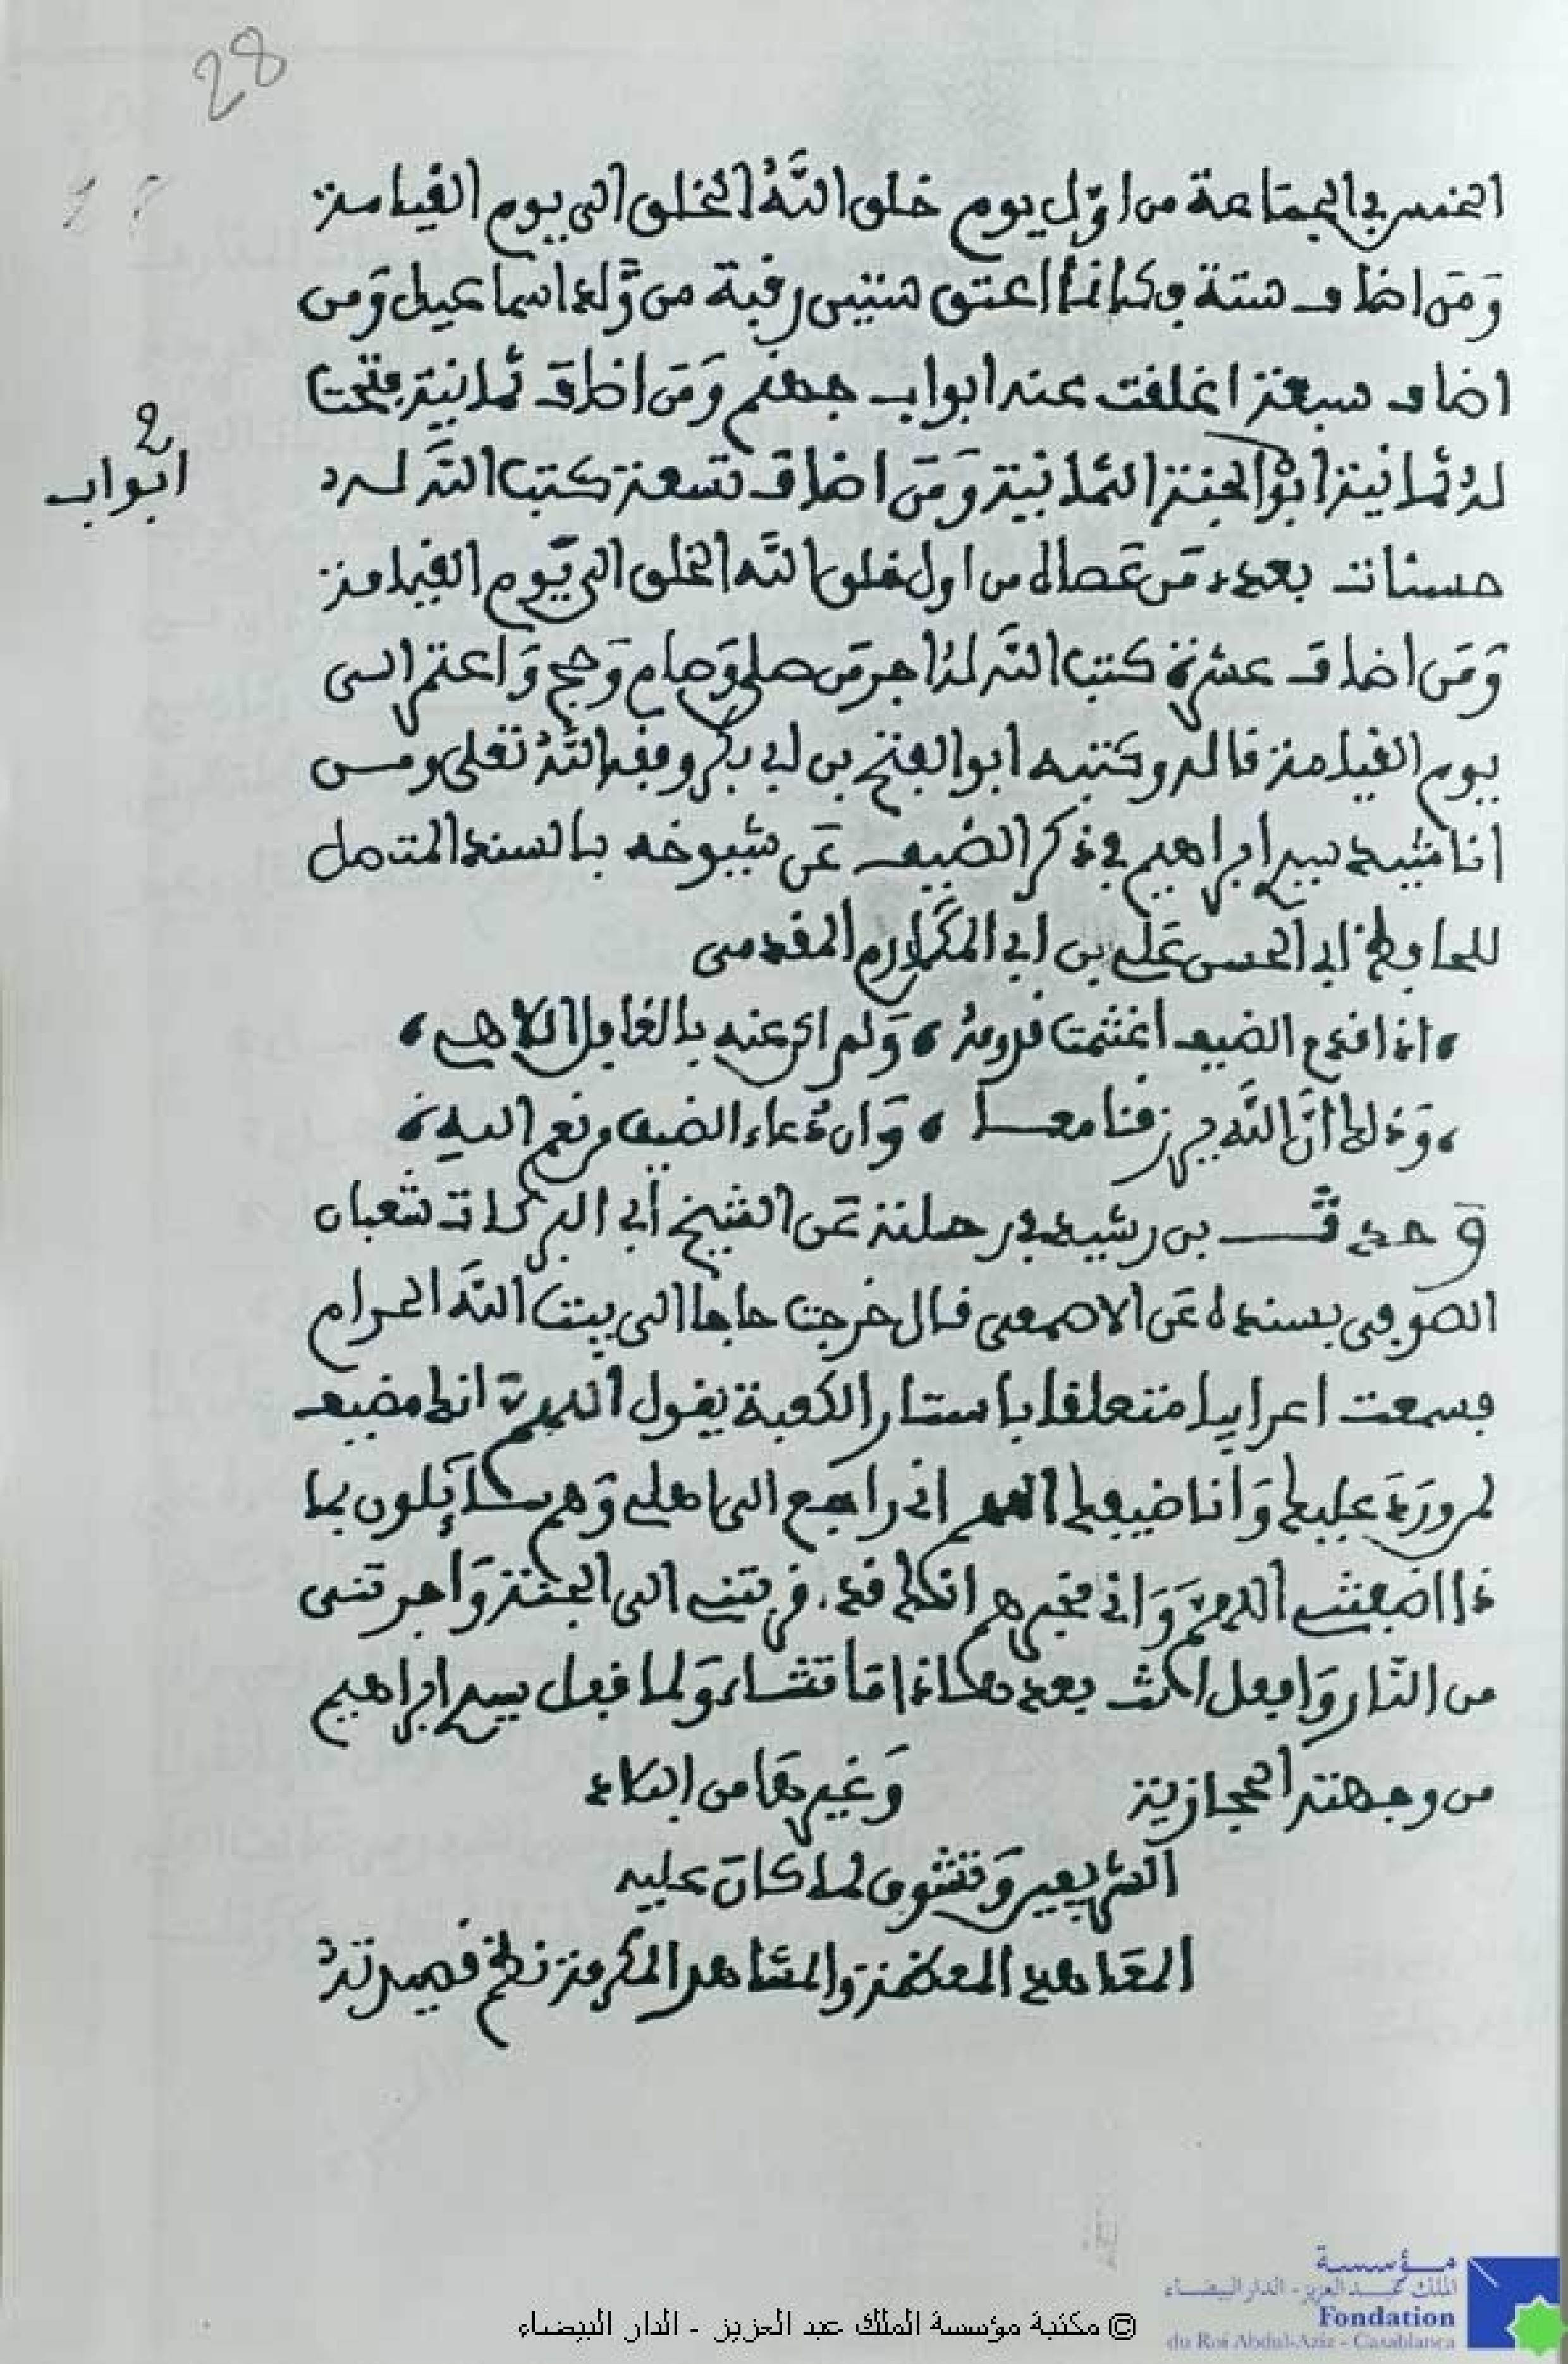 28
الخمس في الجماعة من اوّل يوم خلق اللَّهُ الخلق الى يوم القيامة
وَمَن اضاف ستة فكانما اعتق ستين رقبة من وَّلد اسماعيل وَمن
اضاف سبعة اغلقت عنه ابواب جهنم وَمَن اضاف ثمانية فتحت
لهُ ثمانية ابْوا الجنة الثمانية وَمَن اضاف تسعة كتب اللَّه له
ابْواب
حسنات بعدد مَن عَصاه من اول خلق اللَّه الخلق الى يَوم القيامة
وَمَن اضاف عشرة كتب اللَّه لهُ اجر مَن صلى وَصام وَحج وَاعتمر الى
يوم القيامة قاله وكتبه ابو الفتح بن ابي بكر وفقه اللَّهُ تعلى ومن
اناشيد سيد ابراهيم في ذكر الضيف عَن شيوخه بالسند المتصل
للحافظ ابي الحسن عَلي بن ابي المكَارم المقدسي
، اذا قدم الضيف اغتنمت قدومهُ ، وَلم اك عنه بالغافل اللاهي ،
، وَذلك انَّ اللَّه يرزقنا معا ، وَان دُعاء الضيف يرفع اليه ،
وَحدث بن رشيد في رحلته عَن الشيخ أبي البركات شعبان
الصوفي بسنده عَن الاصمعي قال خرجت حاجا الى بيت اللَّه الحرام
فسمعت اعرابيا متعلقا باستار الكعبة يقول اللهم انك مضيف
لمن ورَد عليك وَانا ضيفك اللهم اني راجع الى اهلي وَهم سائلون بما
ذا اضفتني اللهم وَاني مخبرهم انك قد قربتني الى الجنة وَاجرتني
من النار وَافعل انت بعد هاذا مَا تشاء وَلما قفل سيد ابراهيم
من وجهته الحجازية وَغيرهَا من البلاد
الشريفة وَتشوق لما كان عليه
المعَاهد المعظمة والمشاهد المكرمة نظم قصيدتهُ
© مكتبة مؤسسة الملك عبد العزيز - الدار البيضاء
مؤسسة
الملك عبد العزيز - الدار البيضاء
Fondation
du Roi Abdul-Aziz - Casablanca